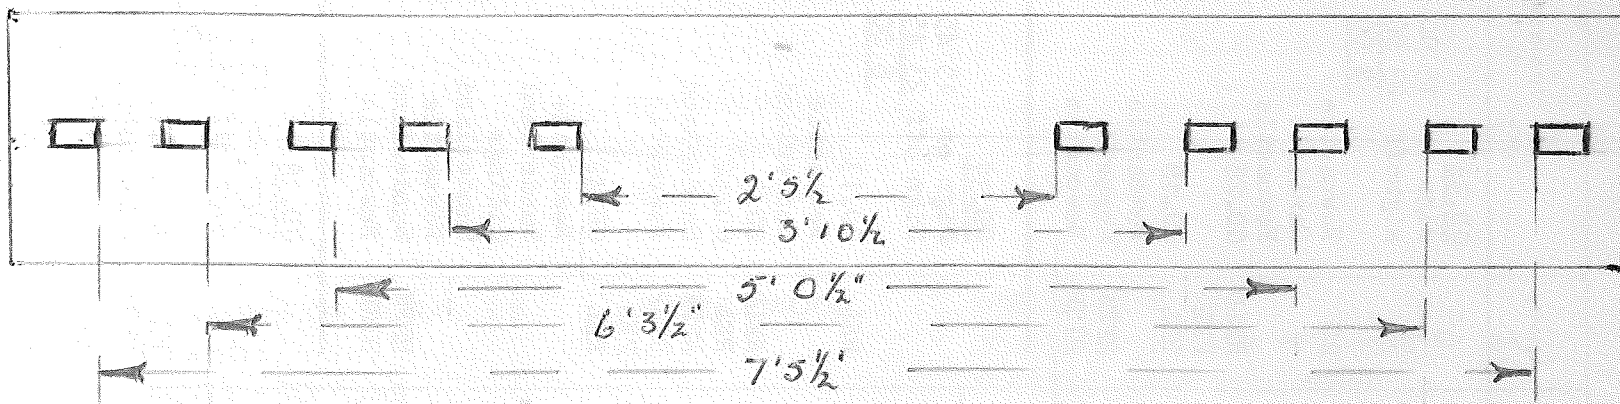 2'5½
3'10½
5'0½"
6'3½"
7'5½'